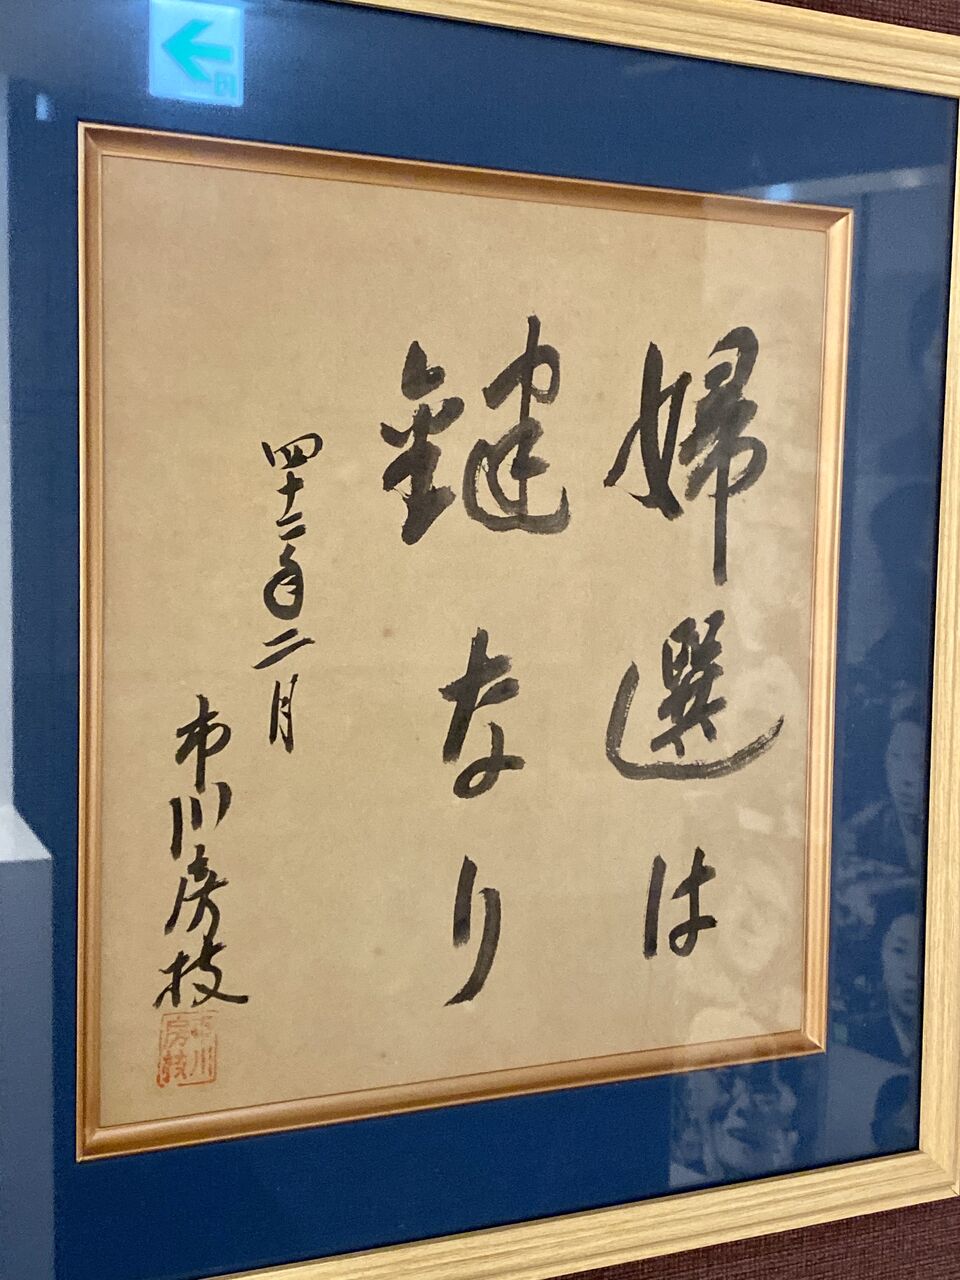 婦選は
鍵なり
四十二年二月
市川房枝
市川
房枝